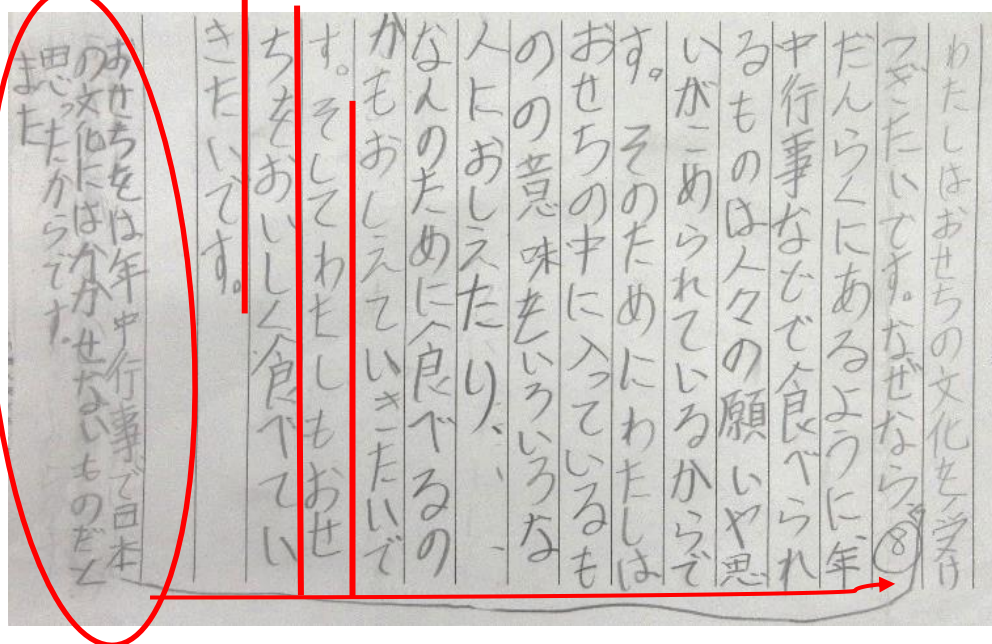 わたしはおせちの文化を受け
つぎたいです。なぜなら、⑧
だんらくにあるように、年
中行事などで食べられ
るものは人々の願いや思
いがこめられているからで
す。そのためにわたしは
おせちの中に入っているも
のの意味をいろいろな
人におしえたり、
なんのために食べるの
かもおしえていきたいで
す。そしてわたしもおせ
ちをおいしく食べてい
きたいです。
おせちをは年中行事で日本
の文化にはかかせないものだと
思ったからです。
また